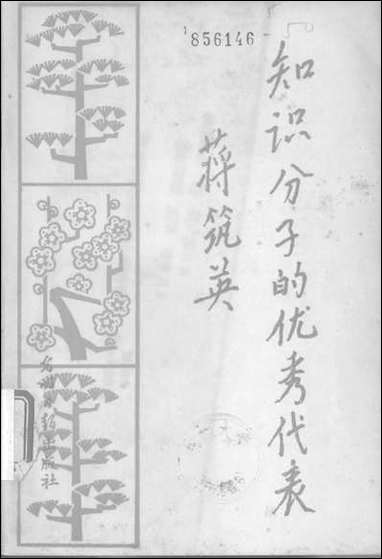 856146
知识分子的优秀代表
蒋筑英
出版社